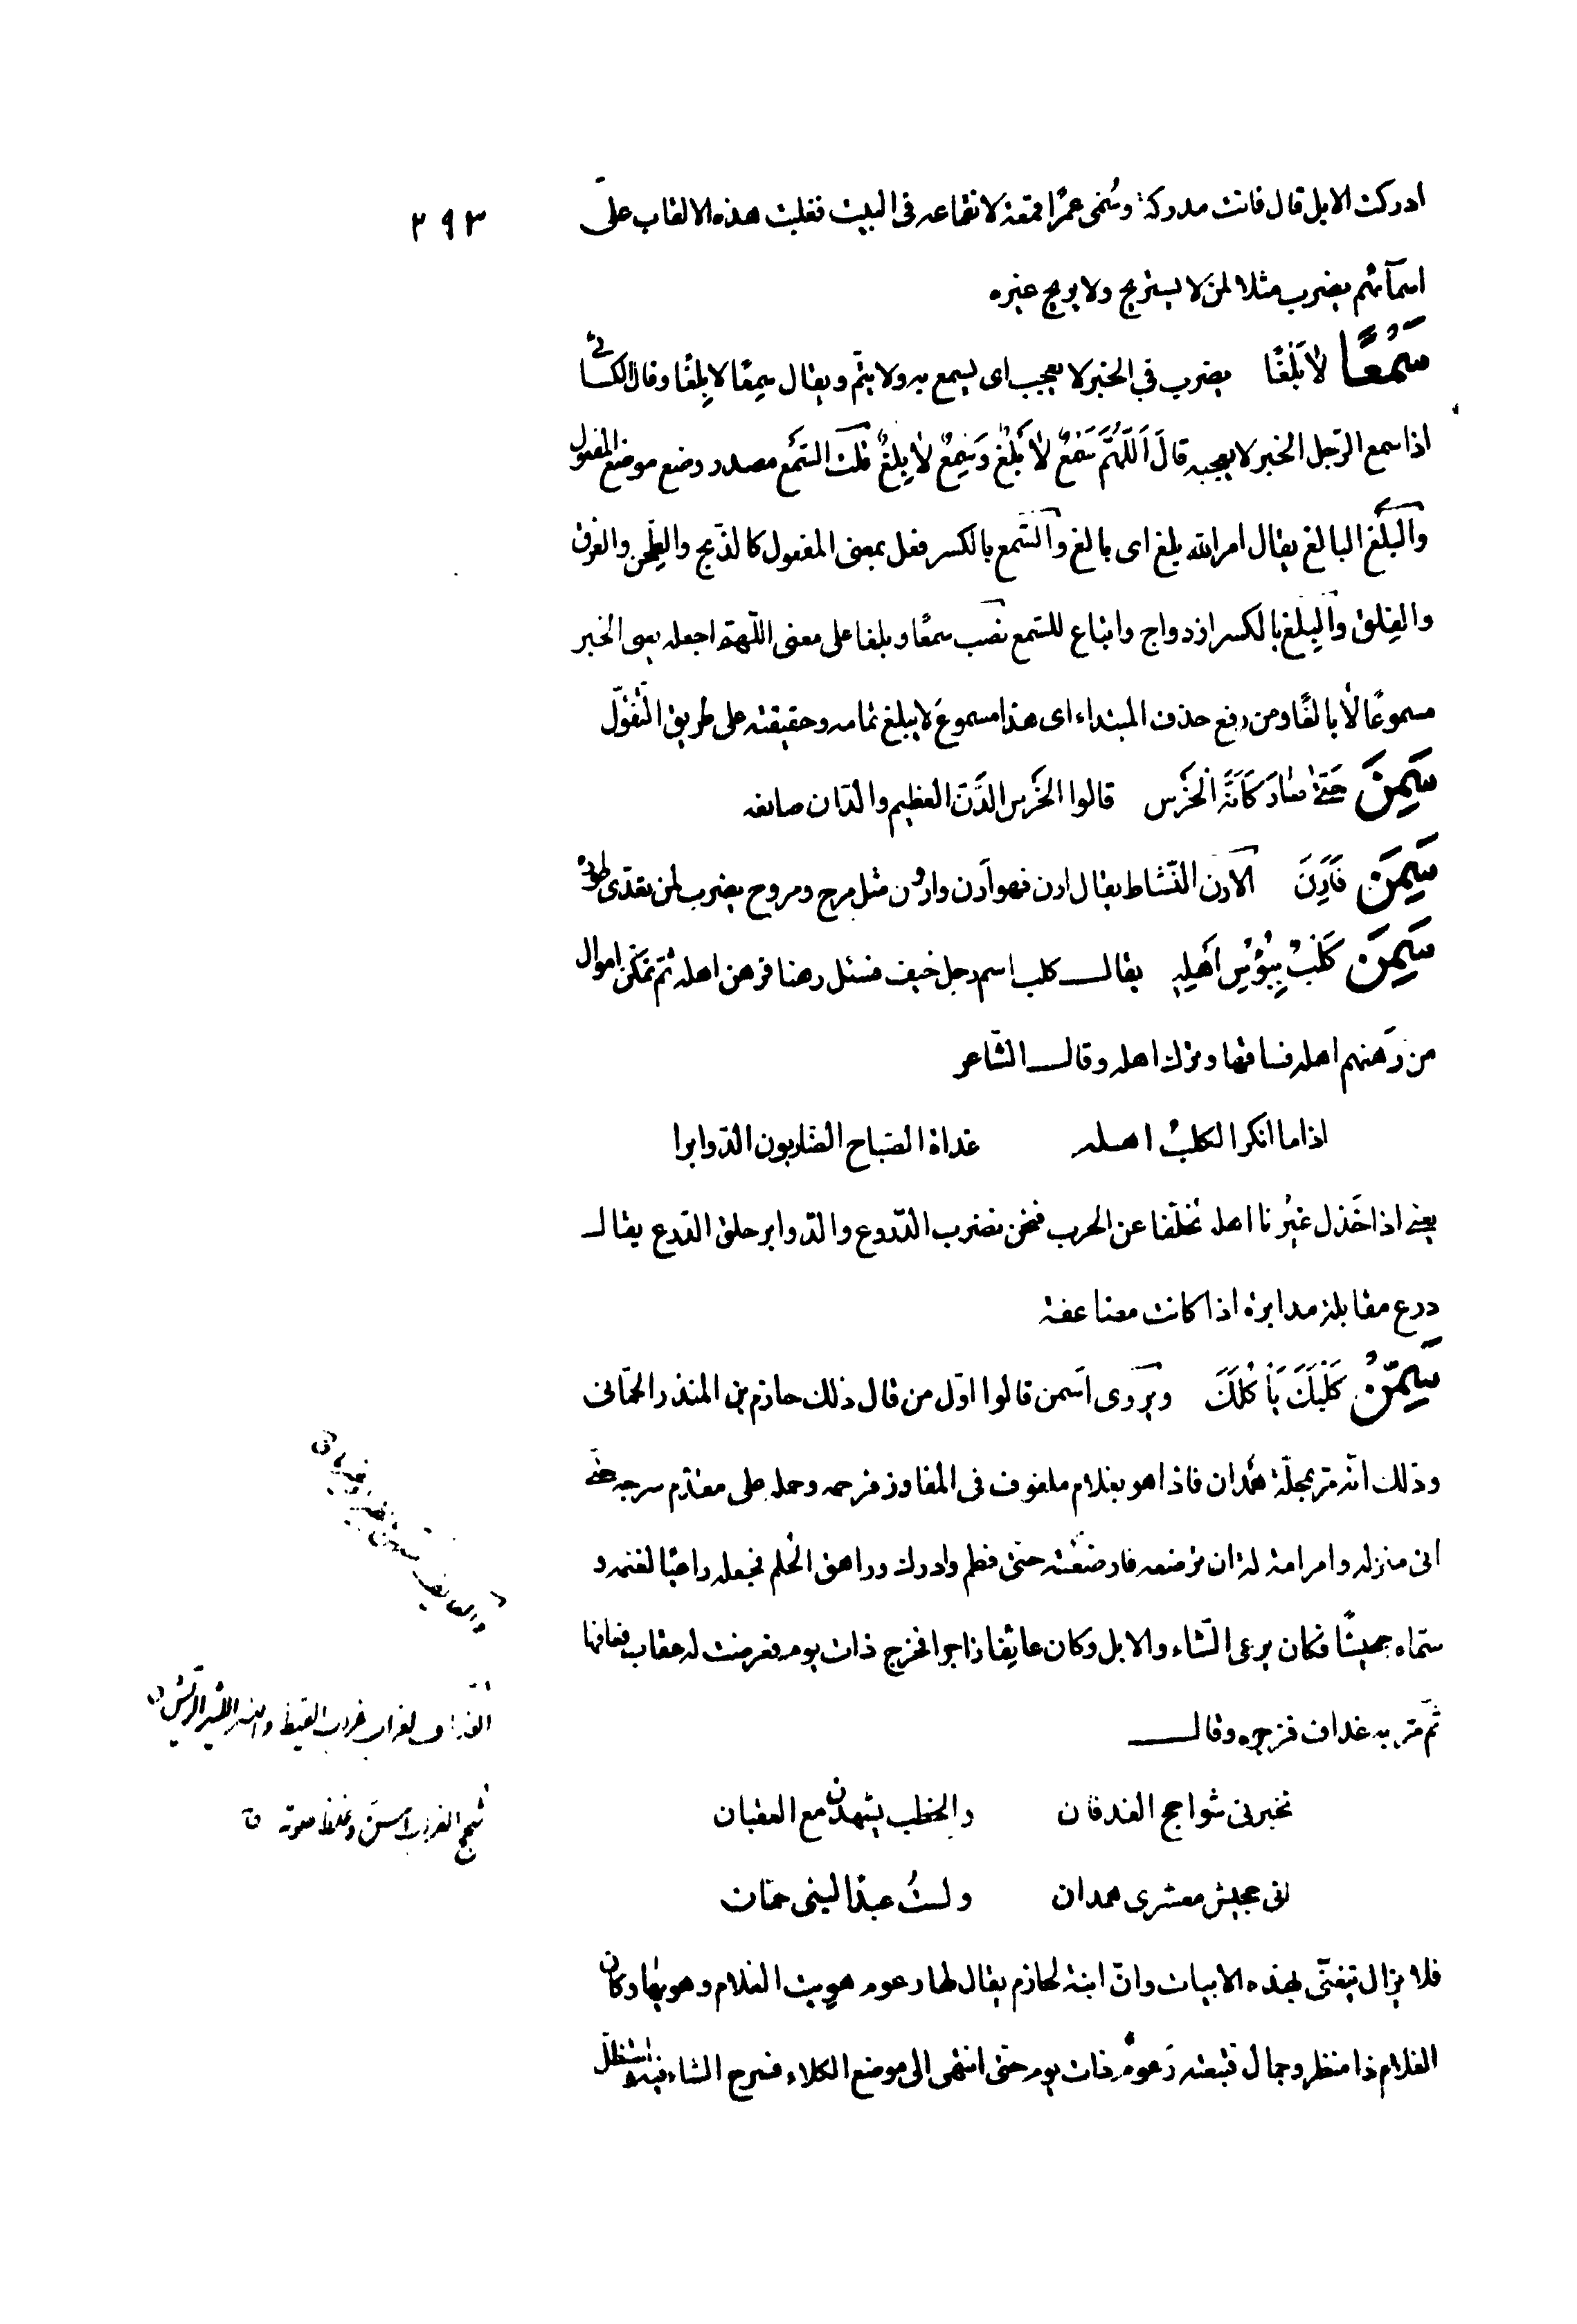 ادركت الابل قال فانت مدركة وسُمّى عمرًا قمعة لانقماعه فى البيت فغلبت هذه الالقاب على
٢٩٣
اسمآئهم يضرب مثلا لمن لا يستريح ولا يريح غيره
سَمْعًا لاٰ بَلْغًا يضرب فى الخبر لا يعجب اى يسمع به ولا يتمّ ويقال سِمعًا لا بِلغًا وقال الكسائى
اذا سمع الرّجل الخبر لا يعجبه قالَ اَللّٰهُمَّ سَمْعٌ لاٰ بَلْغٌ وَسِمْعٌ لاٰ بِلْغٌ قلت السَّمع مصدر وضع موضع المفعول
والبَلْغ البالغ يقال امر الله بلغ اى بالغ والسّمع بالكسر فعل بمعنى المفعول كالذّبح والطّحن والفرق
والفِلق والبِلغ بالكسر ازدواج واتباع للسّمع نصب سمعًا وبلغا على معنى اللّهمّ اجعله يعنى الخبر
مسموعًا لا بالغًا ومن رفع حذف المبتداء اى هذا مسموع لا يبلغ تمامه وحقيقته على طريق التّفؤّل
سَمِنَ حَتّىٰ صٰارَ كَاَنَّهُ الْخَرْس قالوا الخَرس الدَّنّ العظيم والدّنان صانعه
سَمِنَ فَاَرِنَ الارن النّشاط يقال ارن فهو اَرن وارون مثل مرح ومروح يضرب لمن تعدّى طوره
سَمِنَ كَلْبٌ بِبُؤْسِ اَهْلِهٖ يقال كلب اسم رجل خيف فسئل رهنا فرهن اهله ثمّ تمكّن اموال
من رَهنهم اهله فساقها وترك اهله وقال الشّاعر
اذا ما انكر الكلبُ اهله غداة الصّباح الضّاربون الدّوابرا
يعنى اذا خَذل غيرُنا اهله تخلّفا عن الحرب فنحن نضرب الدّروع والدّوابر حلق الدّرع يقال
درع مقابلة مدابرة اذا كانت مضاعفة
سَمِّنْ كَلْبَكَ يَأْكُلْكَ ويروى اسمن قالوا اوّل من قال ذلك حازم بن المنذر الحمّانى
وذلك انّه مرّ بمحلّة همدان فاذا هو بغلام ملفوف فى المفاوز فرحمه وحمله على مقدّم سرجه حتّى
اتى منزله وامر امة له ان ترضعه فارضعَته حتى فطم وادرك وراهق الحُلم فجعله راعيًا لغنمه و
سمّاه جحيشًا فكان يرعى الشّاء والابل وكان عائفا زاجرا فخرج ذات يوم فعرضت له عقاب فعافها
ثمّ مرّ به غداف فزجره وقال
تخبرنى شواحج الغدفان والخطب يشهدن مع العقبان
انى جحيش معشرى همدان ولستُ عبدًا لبنى حمّان
فلا يزال يتغنّى بهذه الابيات وانّ ابنة لحازم يقال لها رعوم هويت الغلام وهويها وكان
الغلام ذا منظر وجمال فتبعته رَعومُ ذات يوم حتى انتهى الى موضع الكلاء فسرح الشاء فيه واستظلّ
شحج الغراب اسنّ وغلظ صوته ق